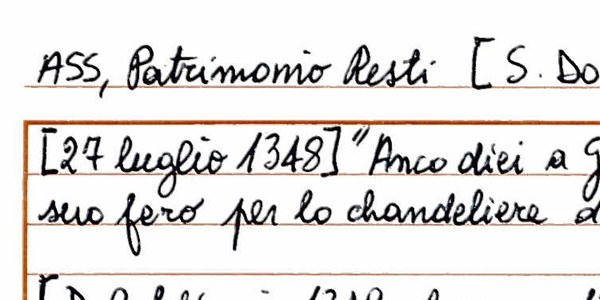 ASS, Patrimonio Resti [S. Do
[27 luglio 1348] "Anco diei a G
suo fero per lo chandeliere d